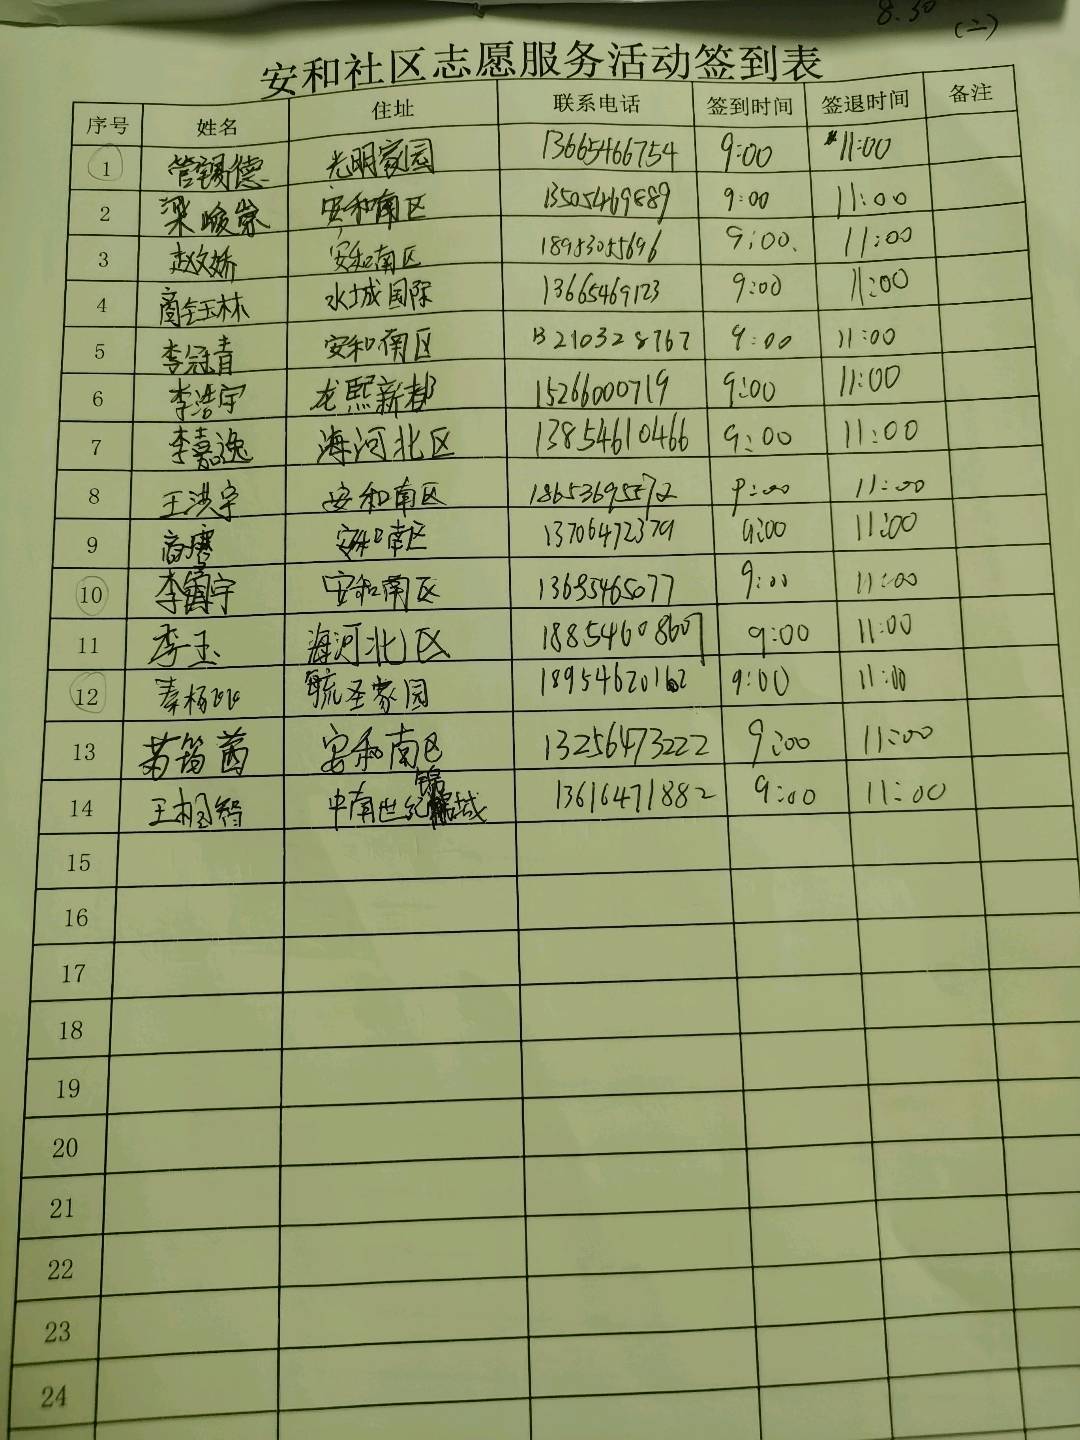 8.30
(二)
安和社区志愿服务活动签到表
序号 姓名 住址 联系电话 签到时间 签退时间 备注
1 管锡德 光明家园 13665466754 9:00 11:00
2 梁峻崇 安和南区 13505469889 9:00 11:00
3 赵文娇 安和南区 18953055696 9:00 11:00
4 商钰林 水城国际 13665469123 9:00 11:00
5 李冠青 安和南区 13210328767 9:00 11:00
6 李浩宇 龙熙新都 15266000719 9:00 11:00
7 李嘉逸 海河北区 13854610466 9:00 11:00
8 王洪宇 安和南区 18653695572 9:00 11:00
9 安和南区 13706472379 9:00 11:00
10 李 宇 安和南区 13695465077 9:00 11:00
11 李玉 海河北区 18854608607 9:00 11:00
12 秦杨 毓圣家园 18954620162 9:00 11:00
13 安和南区 13256473222 9:00 11:00
14 王相智 中南世纪锦城 13616471882 9:00 11:00
15
16
17
18
19
20
21
22
23
24